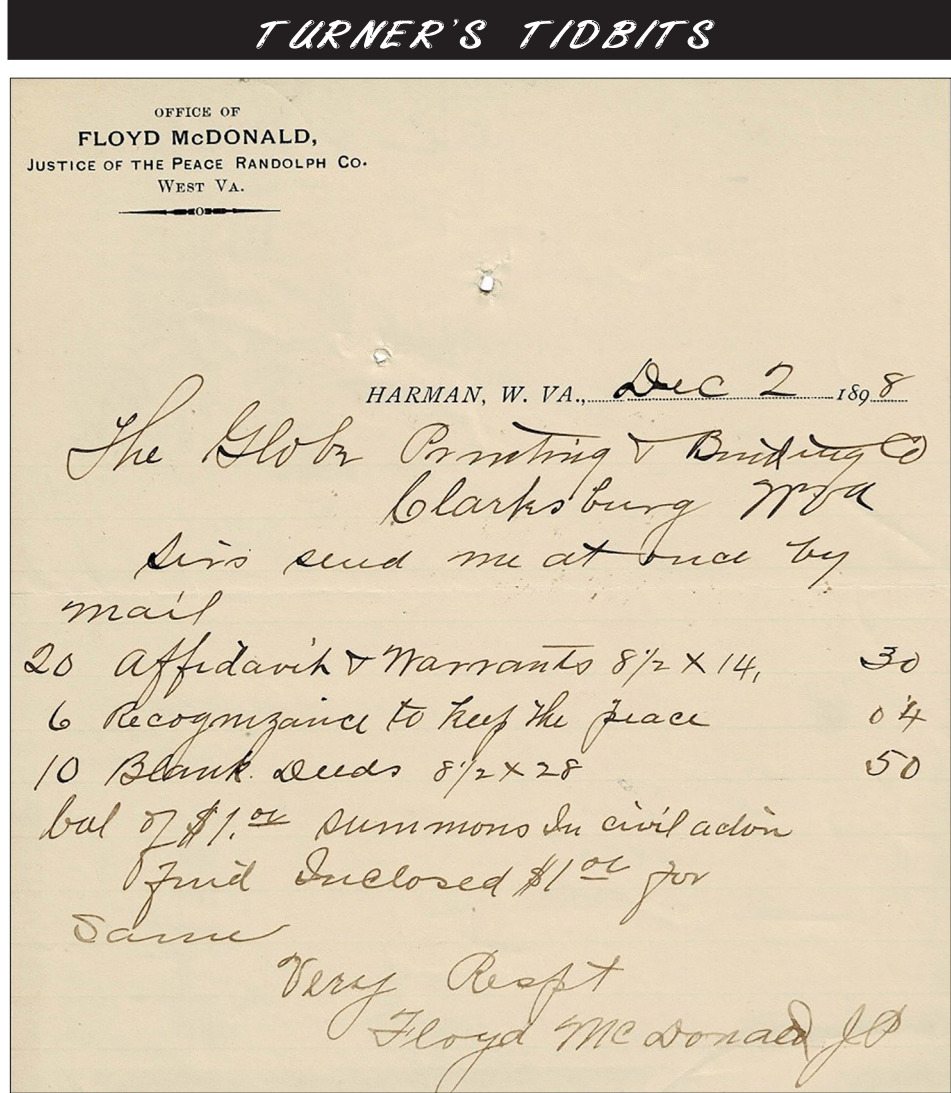 TURNER'S TIDBITS
OFFICE OF
FLOYD McDONALD,
JUSTICE OF THE PEACE RANDOLPH CO.
WEST VA.
HARMAN, W. VA., Dec 2 1898
The Globe Printing & Binding Co
Clarksburg W Va
Sirs send me at once by
mail
20 Affidavit & Warrants 8 1/2 X 14, 30
6 Recognizance to keep the peace 04
10 Blank Deeds 8 1/2 X 28 50
bal of $1.00 summons In civil action
find Inclosed $1 00 for
Same
Very Respt
Floyd McDonald JP